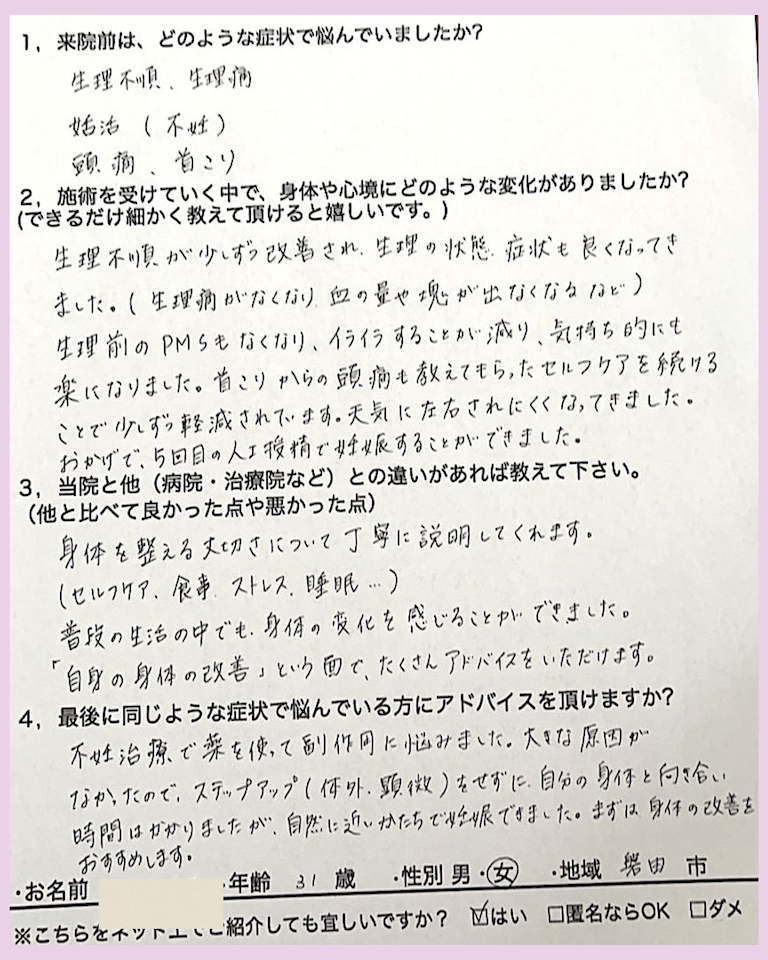 1，来院前は、どのような症状で悩んでいましたか?
生理不順、生理痛
妊活（不妊）
頭痛、首こり
2，施術を受けていく中で、身体や心境にどのような変化がありましたか?
(できるだけ細かく教えて頂けると嬉しいです。)
生理不順が少しずつ改善され、生理の状態、症状も良くなってき
ました。(生理痛がなくなり、血の量や塊が出なくなるなど)
生理前のPMSもなくなり、イライラすることが減り、気持ち的にも
楽になりました。首こりからの頭痛も教えてもらったセルフケアを続ける
ことで少しずつ軽減されています。天気に左右されにくくなってきました。
おかげで、5回目の人工授精で妊娠することができました。
3，当院と他（病院・治療院など）との違いがあれば教えて下さい。
（他と比べて良かった点や悪かった点）
身体を整える大切さについて丁寧に説明してくれます。
(セルフケア、食事、ストレス、睡眠…)
普段の生活の中でも、身体の変化を感じることができました。
「自身の身体の改善」という面で、たくさんアドバイスをいただけます。
4，最後に同じような症状で悩んでいる方にアドバイスを頂けますか?
不妊治療で薬を使って副作用に悩みました。大きな原因が
なかったので、ステップアップ(体外、顕微)をせずに、自分の身体と向き合い
時間はかかりましたが、自然に近いかたちで妊娠できました。まずは身体の改善を
おすすめします。
・お名前 ・年齢 31 歳 ・性別 男・女 ・地域 磐田 市
※こちらをネット上でご紹介しても宜しいですか？ ☑はい □匿名ならOK □ダメ